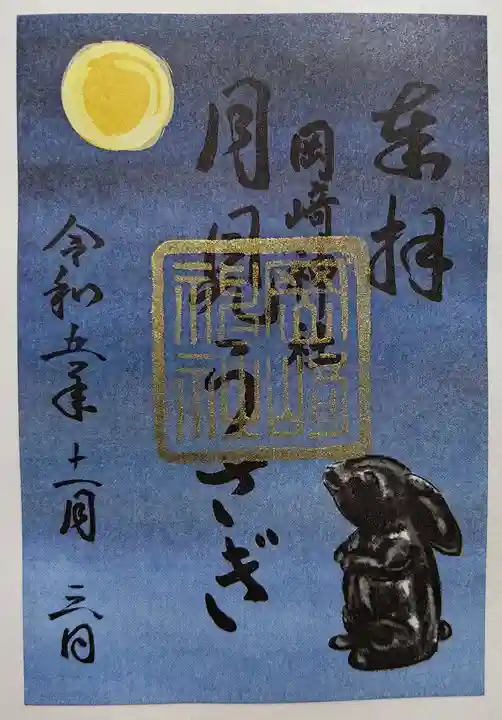 奉拝
岡崎神社
月見うさぎ
岡崎神社
令和五年十一月三日